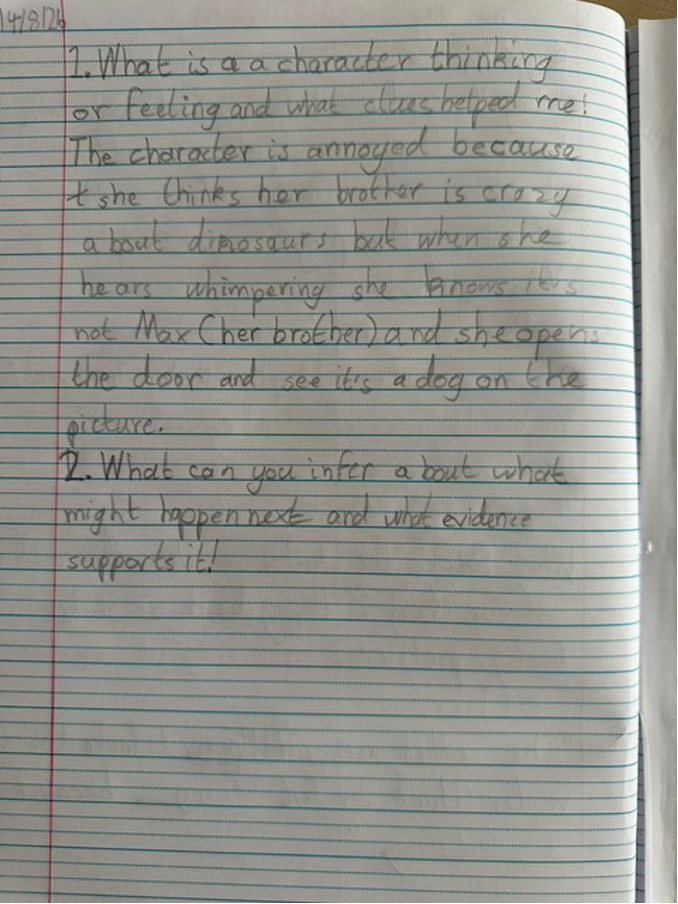 14/8/26
1. What is a a character thinking
or feeling and what clues helped me!
The character is annoyed because
t she thinks her brother is crazy
about dinosaurs but when she
hears whimpering she knows it's
not Max (her brother) and she opens
the door and see it's a dog on the
picture.
2. What can you infer about what
might happen next and what evidence
supports it!